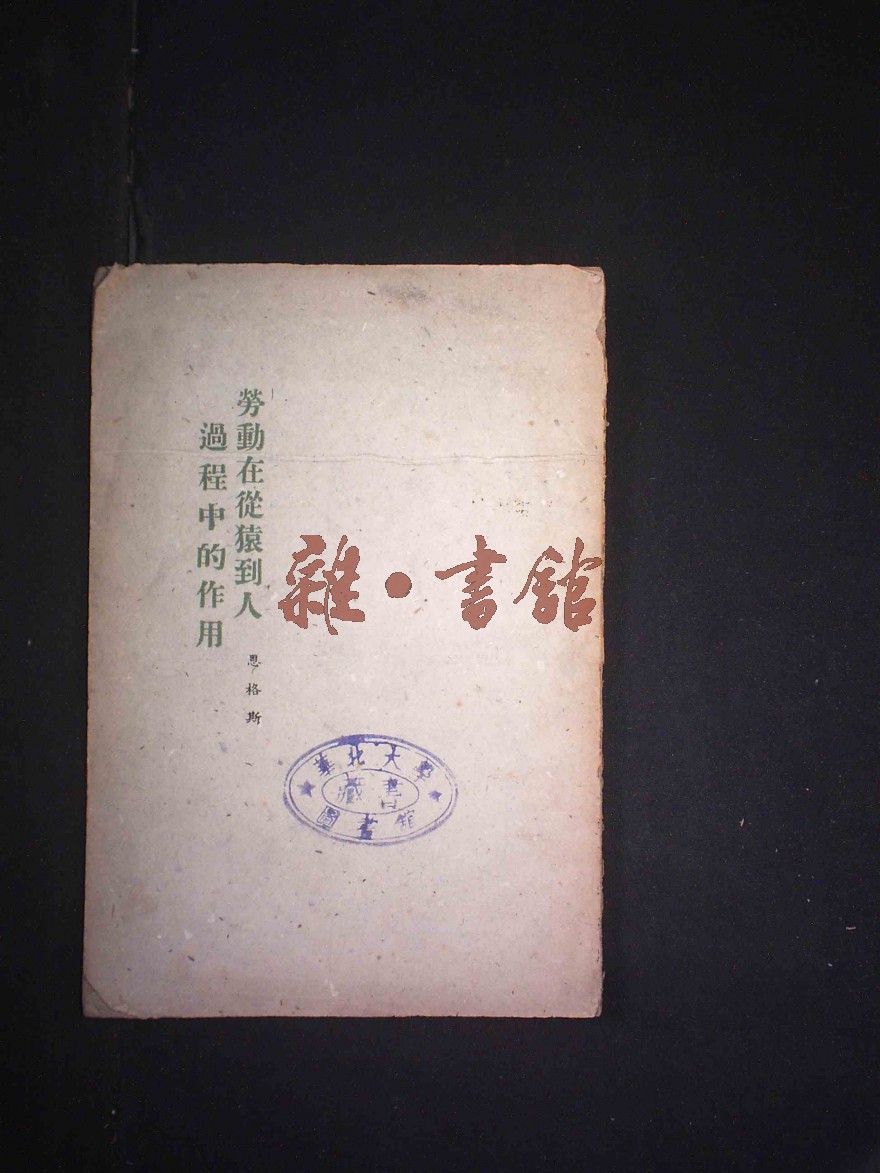 勞動在從猿到人
過程中的作用
恩格斯
雜·書館
華北大學
藏書
圖書館